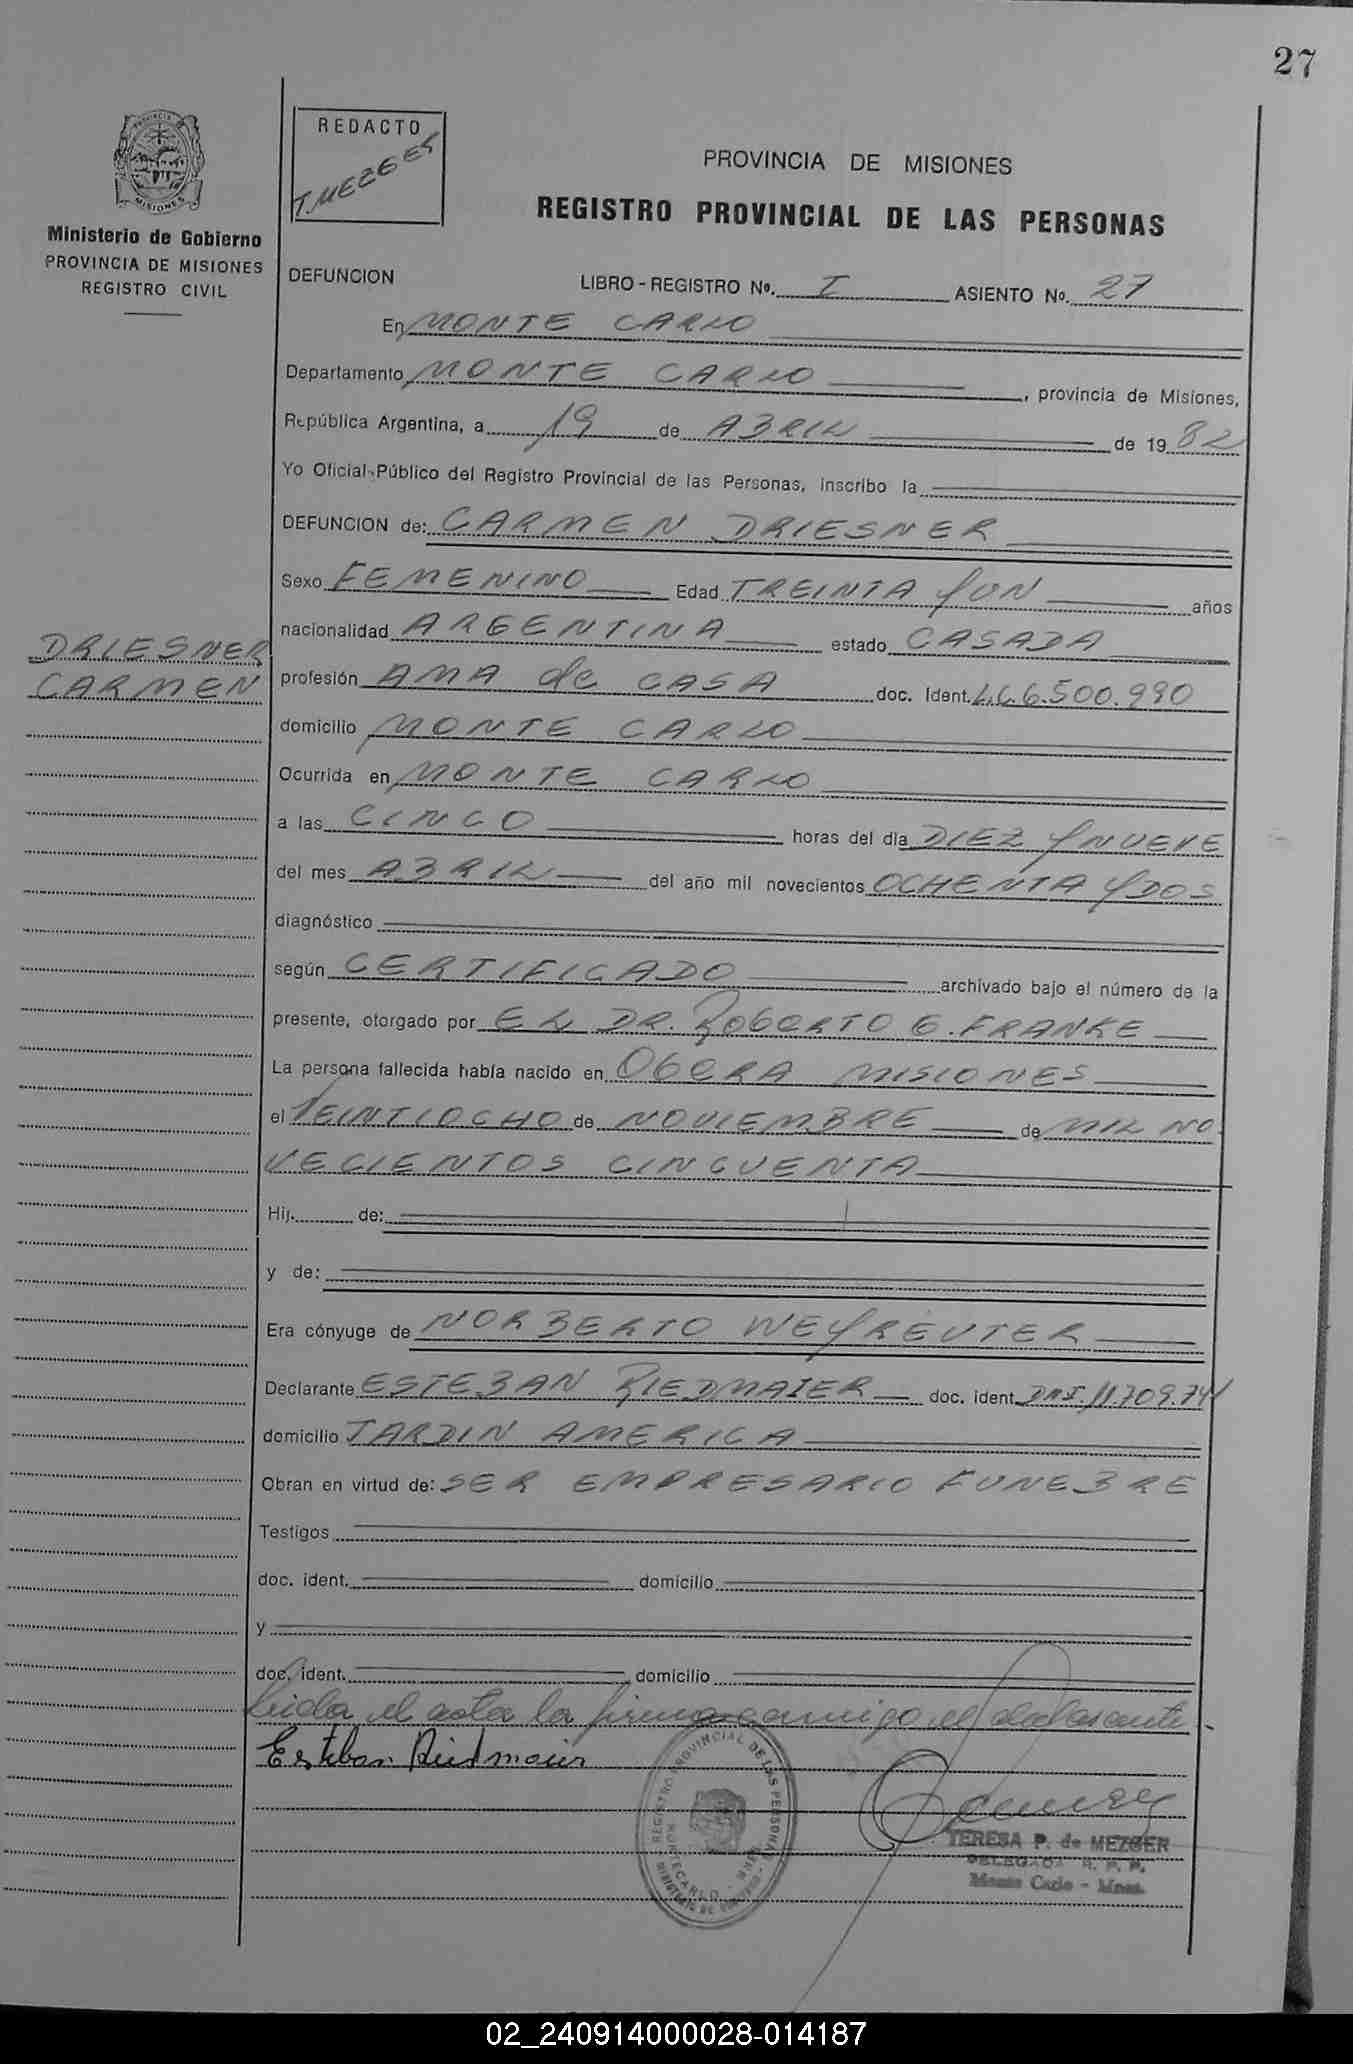 27
REDACTO
T. MEZGER
PROVINCIA DE MISIONES
REGISTRO PROVINCIAL DE LAS PERSONAS
MISIONES
Ministerio de Gobierno
PROVINCIA DE MISIONES
REGISTRO CIVIL
DEFUNCION LIBRO - REGISTRO Nº. I ASIENTO Nº. 27
En MONTE CARLO
Departamento MONTE CARLO, provincia de Misiones,
República Argentina, a 19 de ABRIL de 1982
Yo Oficial Público del Registro Provincial de las Personas, inscribo la
DEFUNCION de: CARMEN DRIESNER
Sexo FEMENINO Edad TREINTA Y UN años
nacionalidad ARGENTINA estado CASADA
DRIESNER
CARMEN
profesión AMA de CASA doc. Ident. L.C. 6.500.990
domicilio MONTE CARLO
Ocurrida en MONTE CARLO
a las CINCO horas del día DIEZ Y NUEVE
del mes ABRIL del año mil novecientos OCHENTA Y DOS
diagnóstico
según CERTIFICADO archivado bajo el número de la
presente, otorgado por EL DR. ROBERTO G. FRANKE
La persona fallecida había nacido en OBERA MISIONES
el VEINTIOCHO de NOVIEMBRE de MIL NO
VECIENTOS CINCUENTA
Hij de:
y de:
Era cónyuge de NORBERTO WEYREUTER
Declarante ESTEBAN RIEDMAIER doc. ident. DNI. 11.709.741
domicilio JARDIN AMERICA
Obran en virtud de: SER EMPRESARIO FUNEBRE
Testigos
doc. ident. domicilio
y
doc. ident. domicilio
Leida el acta la firma conmigo el declarante.
Esteban Riedmaier
REGISTRO PROVINCIAL DE LAS PERSONAS
MONTECARLO
TERESA P. de MEZGER
DELEGADA R. P. P.
Monte Carlo - Mnes.
02_240914000028-014187